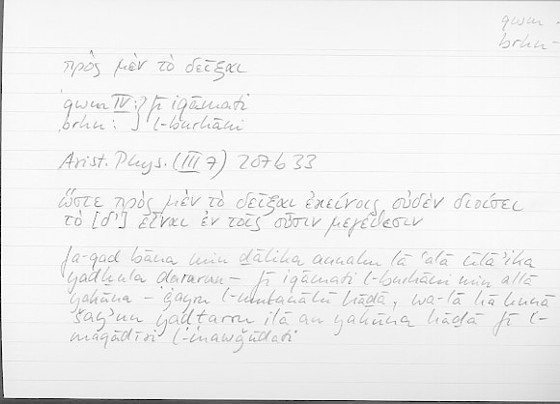 qwm -
brhn -
πρὸς μὲν τὸ δεῖξαι
qwm IV: } fī iqāmati
brhn: } l-burhāni
Arist. Phys. (III 7) 207b33
ὥστε πρὸς μὲν τὸ δεῖξαι ἐκείνοις οὐδὲν διοίσει
τὸ [δ'] εἶναι ἐν τοῖς οὖσιν μεγέθεσιν
fa-qad bāna min ḏālika annahu lā ʿalā ulāʾika
yadḫula ḍararun – fī iqāmati l-burhāni min allā
yakūna – ġayru l-mutanāhī hāḏā, wa-lā hāhunā
šayʾun yaḍṭarru ilā an yakūna hāḏā fī l-
maqādīri l-mawǧūdati